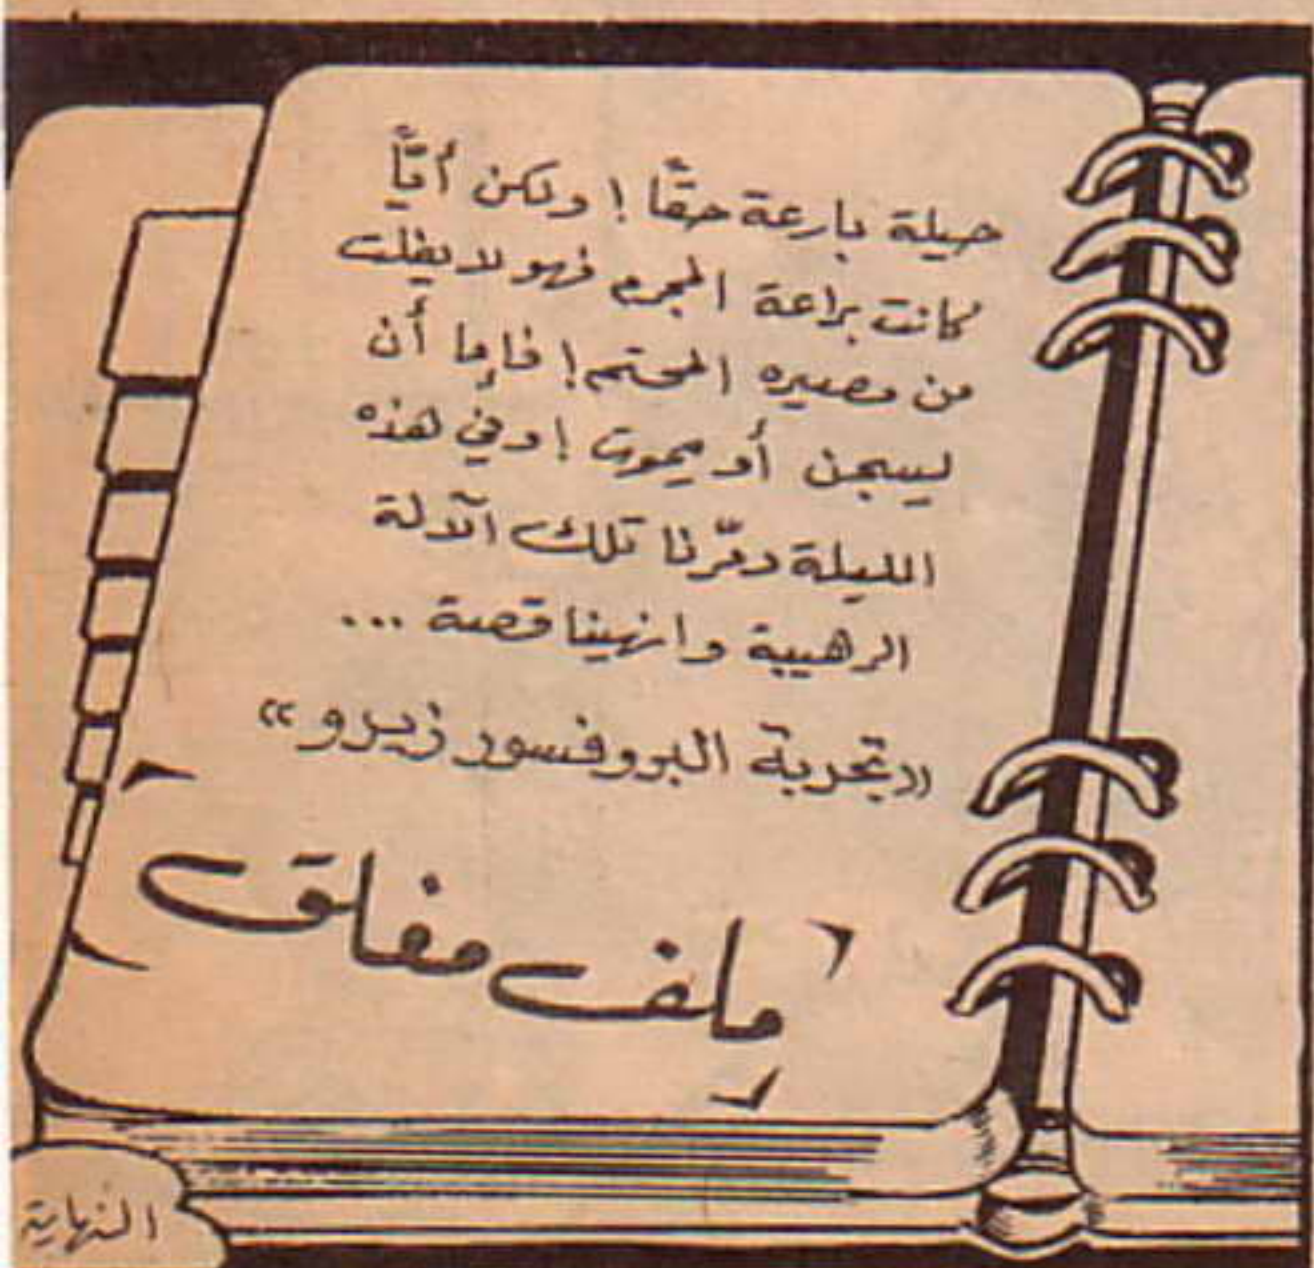 حيلة بارعة حقًا ! ولكن أيًّا
كانت براعة المجرم فهو لا يفلت
من مصيره المحتم ! فإما أن
يسجن أو يموت ! وفي هذه
الليلة دمّرنا تلك الآلة
الرهيبة وانهينا قصة ...
«تجربة البروفسور زيرو»
ملف مغلق
النهاية